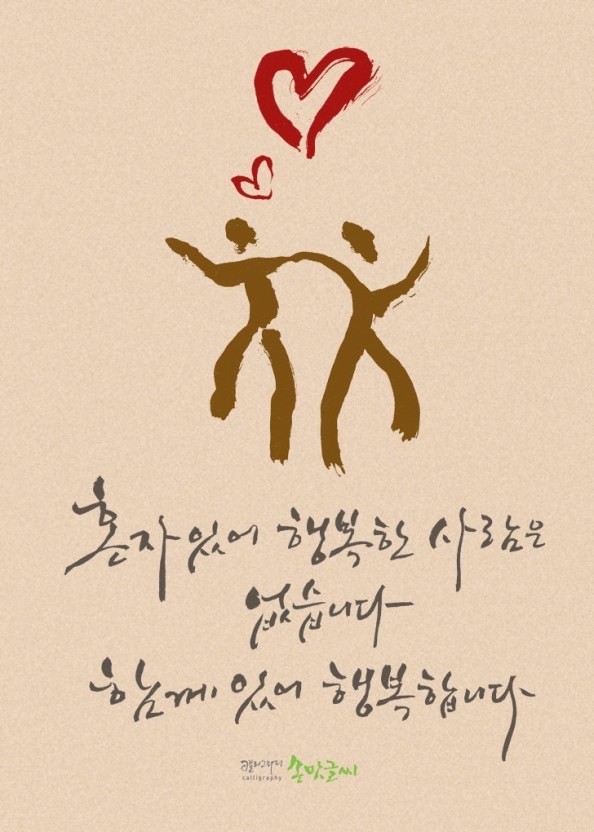 혼자있어 행복한 사람은
없습니다
함께 있어 행복합니다
캘리그라피
calligraphy
손맛글씨